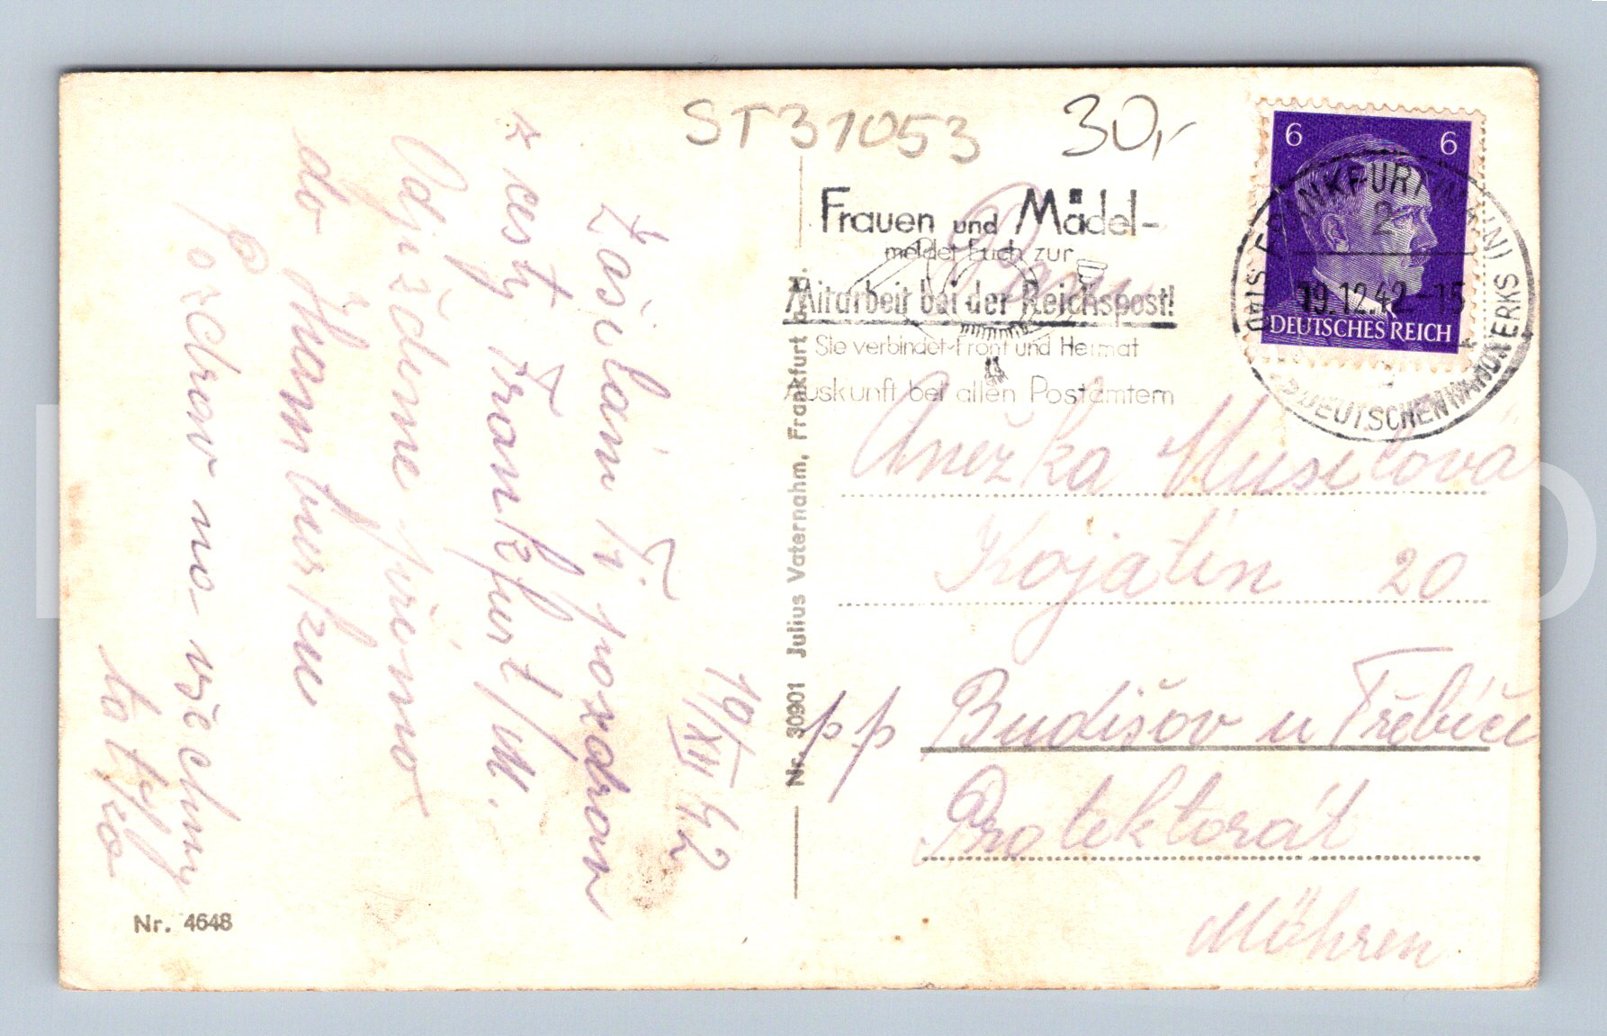 ST31053 30,-
19/XII 42
Zasílám Ti pozdrav
z cesty Frankfurt/M.
Odjíždíme přímo
do Hamburku
Pozdrav na všechny
tatíka
Nr. 4648
Nr. 30901 Julius Vaternahm, Frankfurt a. M.
Frauen und Mädel-
meldet Euch zur
Mitarbeit bei der Reichspost!
Sie verbindet Front und Heimat
Auskunft bei allen Postämtern
6 6
DEUTSCHES REICH
FRANKFURT (MAIN)
2
19.12.42-15
k
D. DEUTSCHEN HANDWERKS
Paní
Anežka Musilová
Kojatín 20
pp Budišov u Třebíče
Protektorát
Möhren